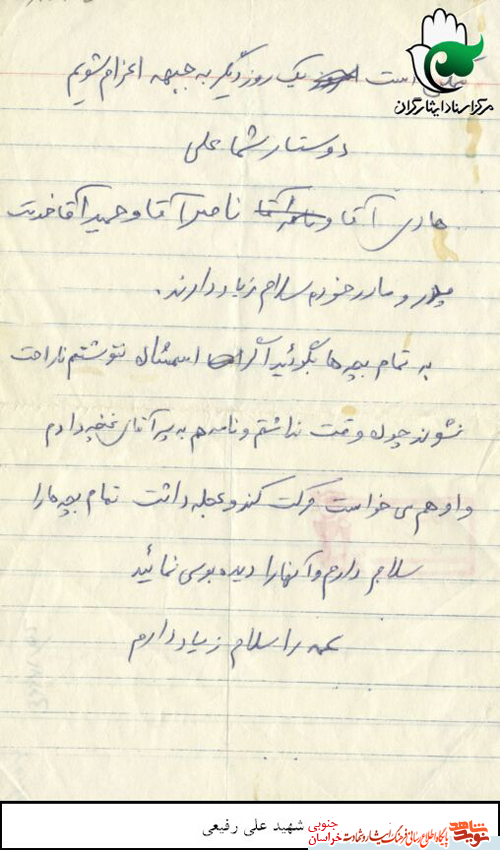 مرکز اسناد ایثارگران
ممکن است یک روز دیگر به جبهه اعزام شویم
دوستار شما علی
هادی آقا و ناصر آقا و حمید آقا خدمت
پدر و مادر خودم سلام زیاد دارند.
به تمام بچه ها بگوئید اگر اسمشان ننوشتم ناراحت
نشوند چون وقت نداشتم و نامه هم به پسر آقای دادم
و او هم می خواست حرکت کند و عجله داشت تمام بچه ها را
سلام دارم و آنها را دیده بوسی نمائید
عمه را سلام زیاد دارم
شهید علی رفیعی
خراسان جنوبی
پایگاه اطلاع رسانی فرهنگ ایثار و شهادت
نوید شاهد